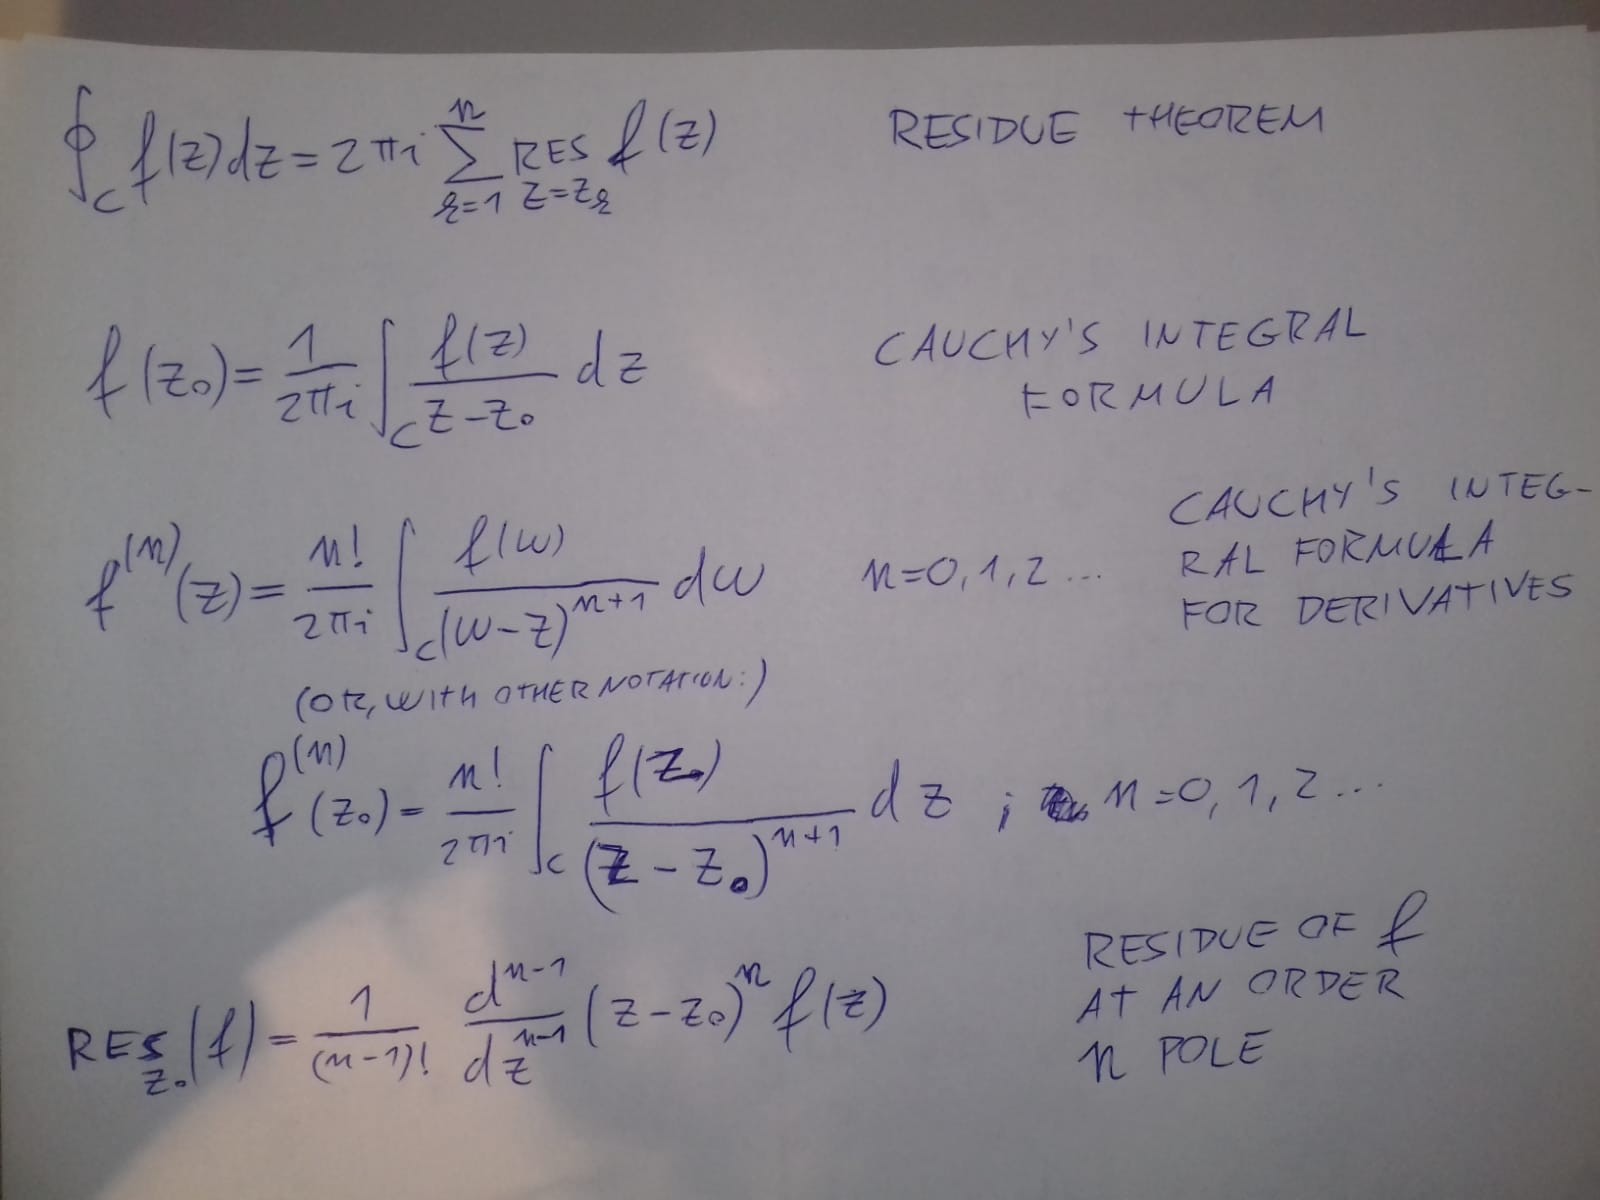 ∮_C f(z)dz = 2πi ∑_{k=1}^{n} RES_{z=z_k} f(z) RESIDUE THEOREM
f(z₀) = 1/(2πi) ∫_C f(z)/(z-z₀) dz CAUCHY'S INTEGRAL
FORMULA
f^{(n)}(z) = n!/(2πi) ∫_C f(w)/(w-z)^{n+1} dw n=0,1,2... CAUCHY'S INTEG-
RAL FORMULA
FOR DERIVATIVES
(OR, WITH OTHER NOTATION:)
f^{(n)}(z₀) = n!/(2πi) ∫_C f(z)/(z-z₀)^{n+1} dz ; n=0,1,2...
RES_{z₀}(f) = 1/(n-1)! d^{n-1}/dz^{n-1} (z-z₀)^n f(z) RESIDUE OF f
AT AN ORDER
n POLE